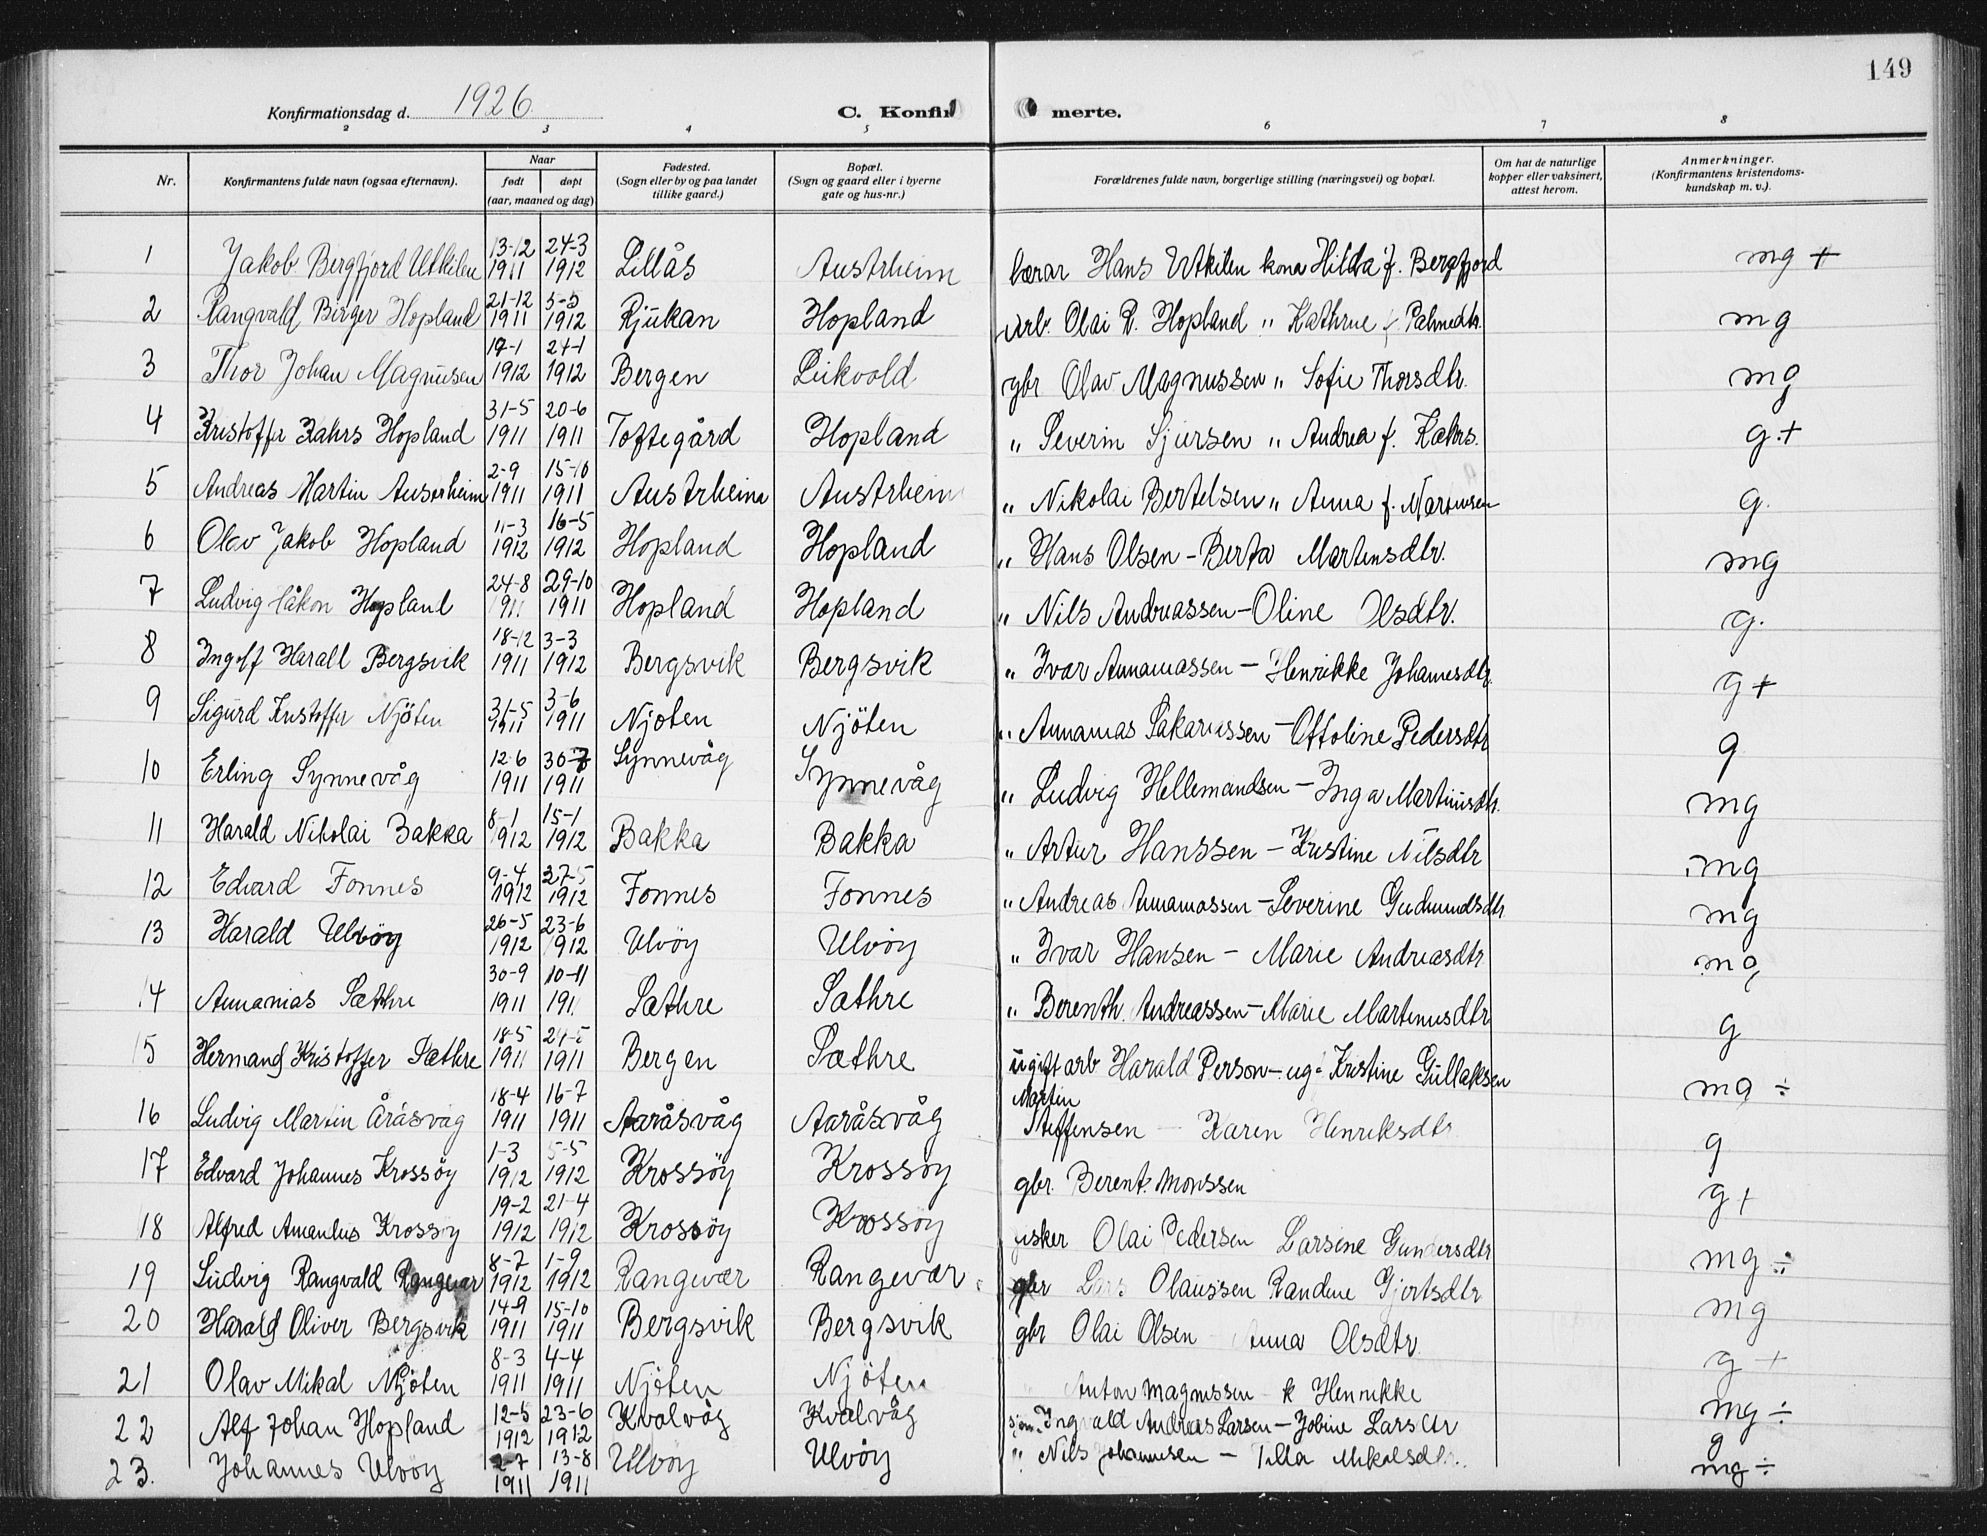 149
Konfirmationsdag d. 1926
C. Konfir merte.
2 3 4 5 6 7 8
Nr. Konfirmantens fulde navn (ogsaa efternavn). Naar født døpt (aar, maaned og dag) Fødested. (Sogn eller by og paa landet tillike gaard.) Bopæl. (Sogn og gaard eller i byerne gate og hus-nr.) Forældrenes fulde navn, borgerlige stilling (næringsvei) og bopæl. Om hat de naturlige kopper eller vaksinert, attest herom. Anmerkninger. (Konfirmantens kristendoms- kundskap m. v.).
1 Jakob Bergfjord Utkilen 13-12 1911 24-3 1912 Lillås Austrheim lærar Hans Utkilen kona Hilda f. Bergfjord mg +
2 Rangvald Birger Hopland 21-12 1911 5-5 1912 Rjukan Hopland arb. Olai R. Hopland " Kathrine f. Palmedtr. mg
3 Thor Johan Magnusen 17-1 1912 24-1 1912 Bergen Leikvold gbr Olav Magnussen " Sofie Thorsdtr. mg
4 Kristoffer Kahrs Hopland 31-5 1911 20-6 1911 Toftegård Hopland " Severin Sjursen " Andrea f. Kahrs. g.+
5 Andreas Martin Austrheim 2-9 1911 15-10 1911 Austrheim Austrheim " Nikolai Bertelsen " Anna f. Martinsen g.
6 Olav Jakob Hopland 11-3 1912 16-5 1912 Hopland Hopland " Hans Olsen - Berta Martensdtr. mg
7 Ludvig Håkon Hopland 24-8 1911 29-10 1911 Hopland Hopland " Nils Andreassen - Oline Olsdtr. g.
8 Ingolf Harall Bergsvik 18-12 1911 3-3 1912 Bergsvik Bergsvik " Ivar Annamassen - Henrikke Johannesdtr. g +
9 Sigurd Kristoffer Njöten 31-5 1911 3-6 1911 Njoten Njöten " Annanias Sakariassen - Ottoline Pedersdtr g
10 Erling Synnevåg 12-6 1911 30-7 1911 Synnevåg Synnevåg " Ludvig Hellemandsen - Inga Martinusdtr. mg
11 Harald Nikolai Bakka 8-1 1912 15-1 1912 Bakka Bakka " Artur Hanssen - Kristine Nilsdtr mg
12 Edvard Fonnes 9-4 1912 27-5 1912 Fonnes Fonnes " Andreas Annamassen - Severine Gudmundsdtr mg
13 Harald Ulvöy 26-5 1912 23-6 1912 Ulvöy Ulvöy " Ivar Hansen - Marie Andreasdtr mg
14 Annanias Sæthre 30-9 1911 10-11 191 Sæthre Sæthre " Berenth. Andreassen - Marie Martinusdtr g
15 Hermand Kristoffer Sæthre 18-5 1911 1911 Bergen Sæthre ugift arb Harald Person - ug. Kristine Gullaksen mg ÷
16 Ludvig Martin Åråsvåg 18-4 1911 16-7 1911 Aaråsvåg Aaråsvåg Martin Steffensen - Karen Henriksdtr. g
17 Edvard Johannes Krossöy 1-3 1912 5-5 1912 Krossöy Krossöy gbr. Berent. Monssen g +
18 Alfred Amandus Krossöy 19-2 1912 21-4 1912 Krossöy Krossöy fisker Olai Pedersen Larsine Gundersdtr mg ÷
19 Ludvig Rangvald Rangevær 8-7 1912 1-9 1912 Rangevær Rangevær gbr Lars Olaussen Randine Gjertsdtr mg
20 Harald Oliver Bergsvik 14-9 1911 15-10 1911 Bergsvik Bergsvik gbr Olai Olsen Anna Olsdtr. g +
21 Olav Mikal Njöten 8-3 1911 4-4 1911 Njöten Njöten " Anton Magnussen - k Henrikke mg ÷
22 Alf Johan Hopland 12-5 1912 23-6 1912 Kvalvåg Kvalvåg Ingvald Andreas Larsen - Jobine Larsdtr g
23. Johannes Ulvöy 2-7 1911 13-8 1911 Ulvöy Ulvöy " Nils Johannesen - Tilla Mikalsdtr. mg ÷